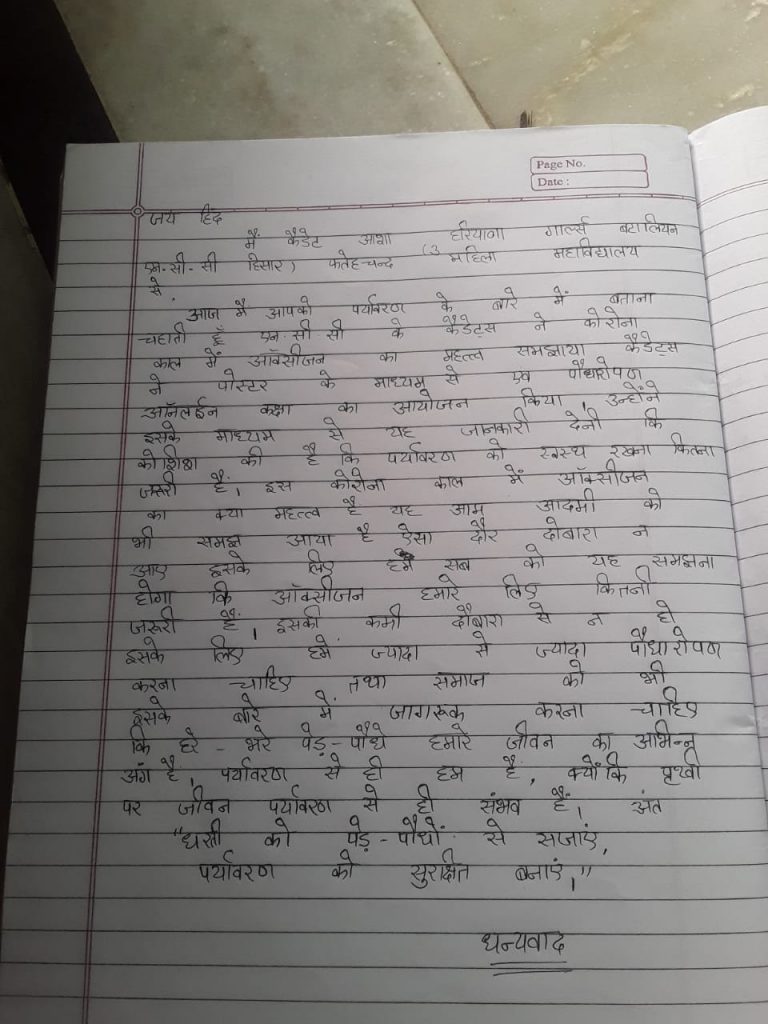 Page No.
Date :
जय हिंद
मैं कैडेट आशा (3 हरियाणा गार्ल्स बटालियन
एन.सी.सी हिसार) फतेहचन्द महिला महाविद्यालय
से.
आज मैं आपको पर्यावरण के बारे में बताना
चहाती हूँ एन.सी.सी के कैडेट्स ने कोरोना
काल में ऑक्सीजन का महत्त्व समझाया कैडेट्स
ने पोस्टर के माध्यम से एवं पौधारोपण
ऑनलाईन कक्षा का आयोजन किया, उन्होंने
इसके माध्यम से यह जानकारी देनी कि
कोशिश की है कि पर्यावरण को स्वस्थ रखना कितना
जरूरी है, इस कोरोना काल में ऑक्सीजन
का क्या महत्त्व है यह आम आदमी को
भी समझ आया है ऐसा दौर दोबारा न
आए इसके लिए हमें सब को यह समझना
होगा कि ऑक्सीजन हमारे लिए कितनी
जरूरी है, इसकी कमी दौबारा से न हो
इसके लिए हमें ज्यादा से ज्यादा पौधारोपण
करना चाहिए तथा समाज को भी
इसके बारे में जागरूक करना चाहिए
कि हरे - भरे पेड़ - पौधे हमारे जीवन का अभिन्न
अंग है, पर्यावरण से ही हम है, क्योंकि पृथ्वी
पर जीवन पर्यावरण से ही संभव है, अंत
"धरती को पेड़ - पौधों से सजाएं,
पर्यावरण को सुरक्षित बनाएं,"
धन्यवाद